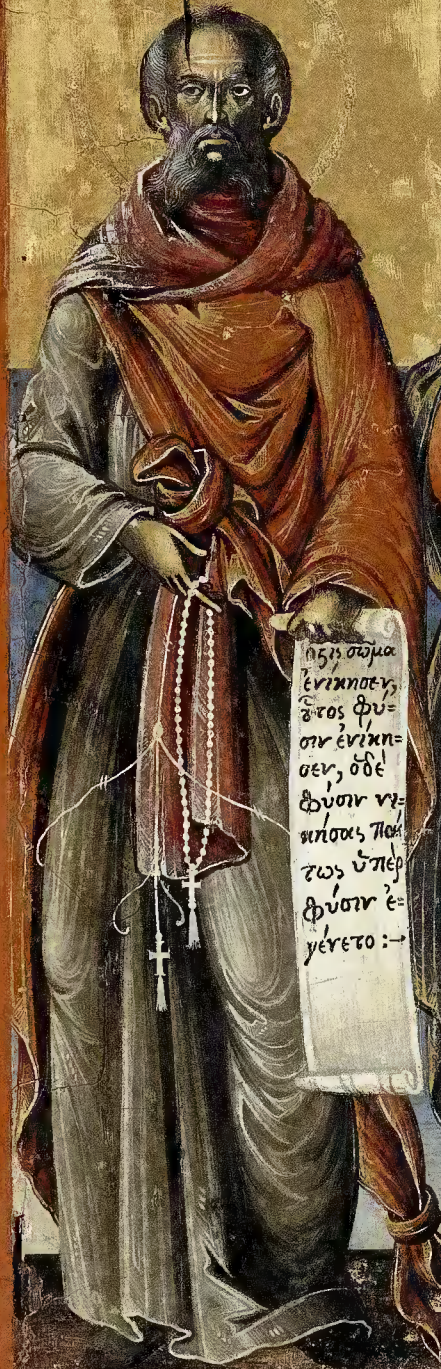 ὅςις σῶμα
ἐνίκησεν,
ȣ̃τος φύ-
σιν ἐνίκη=
σεν, ὁδὲ
φύσιν νι=
κήσας πάν
τως ὑπὲρ
φύσιν ἐ=
γένετο :→